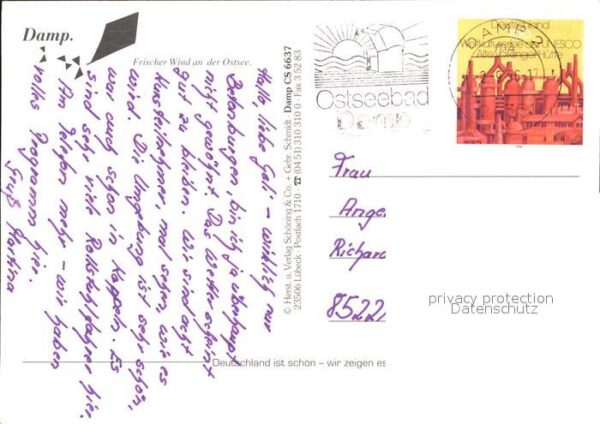 Damp.
Frischer Wind an der Ostsee.
Hallo liebe Geli – wirklich nur
bin ich ja überhaupt
nicht gewöhnt. Das Wetter scheint
gut zu bleiben. Wir sind acht
mal sehen, wie es
wird. Die Umgebung ist sehr schön,
war auch schon in Kappeln. Es
sind sehr viele Rollstuhlfahrer hier.
Am Telefon mehr – wir haben
volles Programm hier.
Gruß Martina
© Herst. u. Verlag Schöning & Co. + Gebr. Schmidt Damp CS 6637
23506 Lübeck · Postfach 1710 · ☎ (04 51) 310 310 0 · Fax 3 52 83
Ostseebad
Damp
DAMP
Deutschland
Weltkulturerbe der UNESCO
Alte Völklinger Hütte
Frau
Ange
Richard
8522
privacy protection
Datenschutz
Deutschland ist schön – wir zeigen es